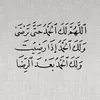 اللَّهُمَّ لَكَ الْحَمْدُ حَتَّىٰ تَرْضَىٰ
وَلَكَ الْحَمْدُ إِذَا رَضِيتَ
وَلَكَ الْحَمْدُ بَعْدَ الرِّضَا